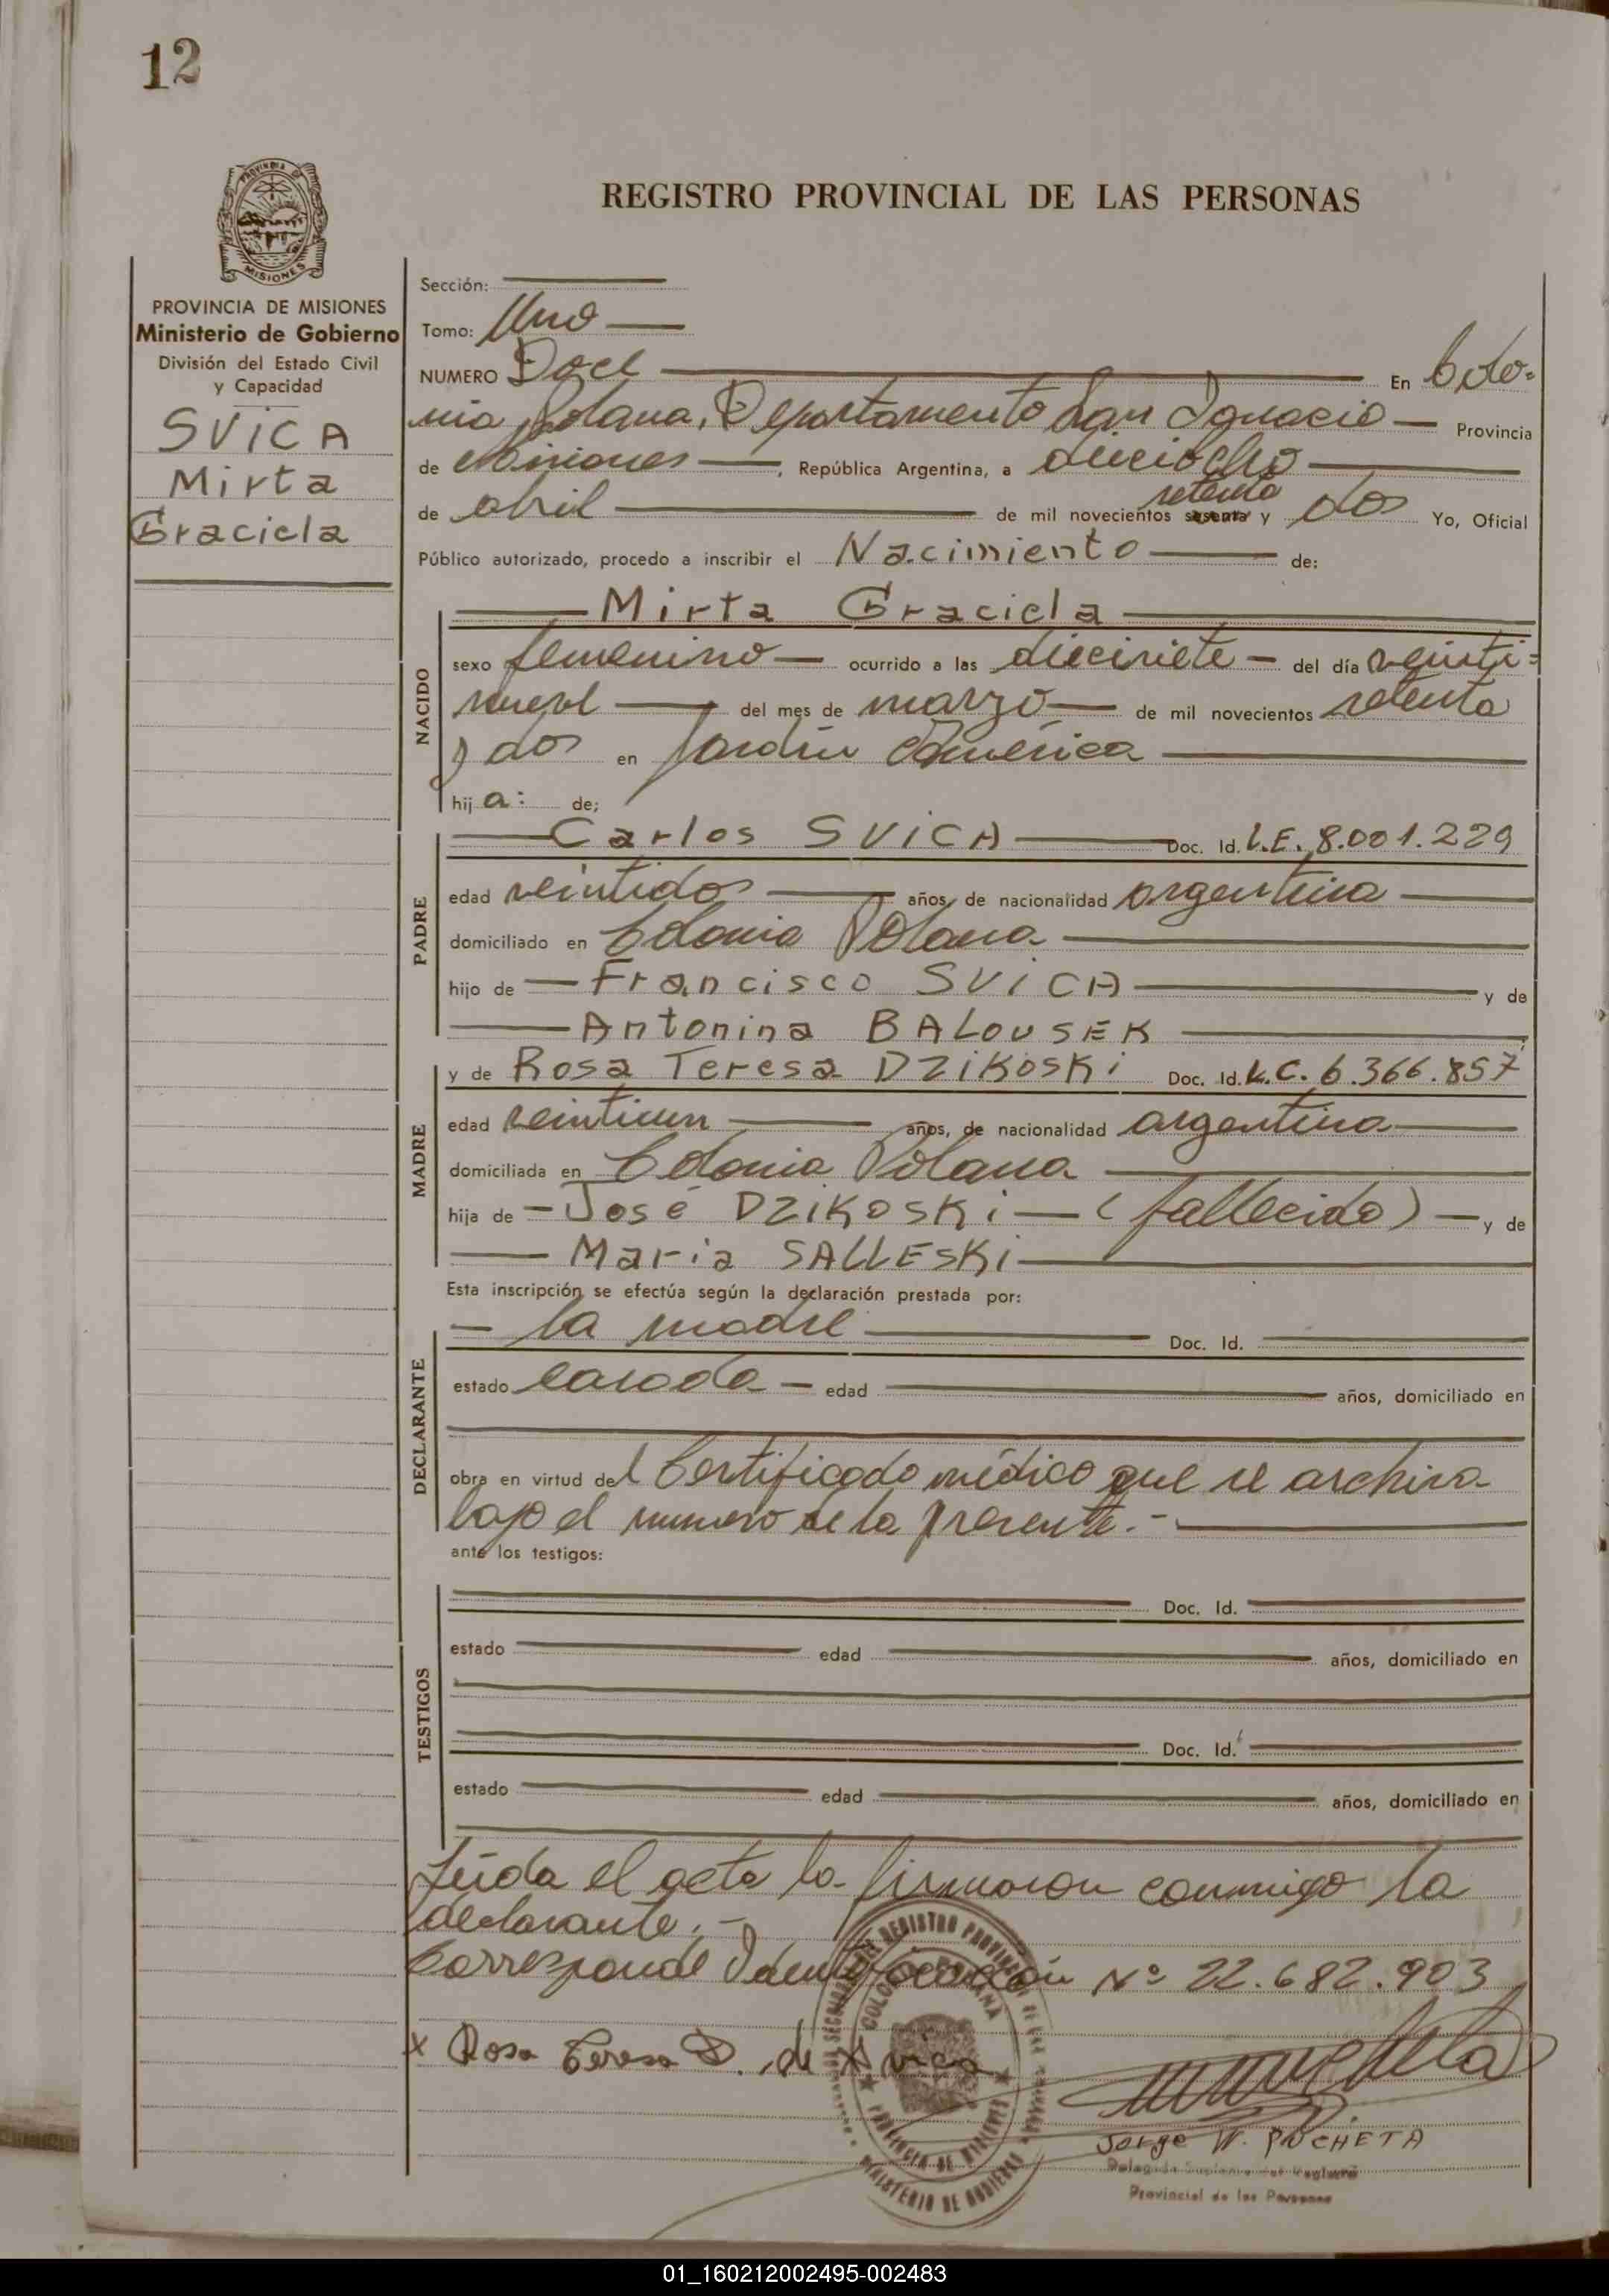 12
REGISTRO PROVINCIAL DE LAS PERSONAS
PROVINCIA DE
MISIONES
PROVINCIA DE MISIONES
Ministerio de Gobierno
División del Estado Civil
y Capacidad
SVICA
Mirta
Graciela
Sección:
Tomo: Uno
NUMERO Doce En Colo-
nia Polana, Departamento San Ignacio Provincia
de Misiones, República Argentina, a dieciocho
de abril de mil novecientos setenta y dos Yo, Oficial
Público autorizado, procedo a inscribir el Nacimiento de:
Mirta Graciela
NACIDO
sexo femenino ocurrido a las diecisiete del día veinti=
nueve del mes de marzo de mil novecientos setenta
y dos en Jardín América
hij a: de;
PADRE
Carlos SVICA Doc. Id. L.E. 8.001.229
edad veintidos años, de nacionalidad argentina
domiciliado en Colonia Polana
hijo de Francisco SVICA y de
Antonina BALOUSEK
MADRE
y de Rosa Teresa DZIKOSKI Doc. Id. L.C. 6.366.857
edad veintiun años, de nacionalidad argentina
domiciliada en Colonia Polana
hija de José DZIKOSKI (fallecido) y de
Maria SALLESKI
Esta inscripción se efectúa según la declaración prestada por:
DECLARANTE
la madre Doc. Id.
estado casada edad años, domiciliado en
obra en virtud del Certificado médico que se archiva
bajo el numero de la presente.-
ante los testigos:
TESTIGOS
Doc. Id.
estado edad años, domiciliado en
Doc. Id.
estado edad años, domiciliado en
Leida el acta la firmaron conmigo la
declarante.-
Corresponde Identificación Nº 22.682.903
x Rosa Teresa D. de Svica
REGISTRO PROVINCIAL DE LAS
COLONIA POLANA
PROVINCIA DE MISIONES
MINISTERIO DE GOBIERNO
Jorge W. PUCHETA
Delegado Suplente del Registro
Provincial de las Personas
01_160212002495-002483